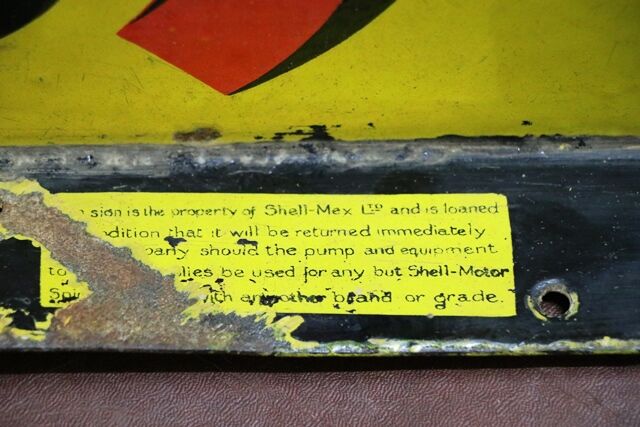 sign is the property of Shell-Mex LTD and is loaned
that it will be returned immediately
should the pump and equipment
to be used for any but Shell-Motor
with another brand or grade.